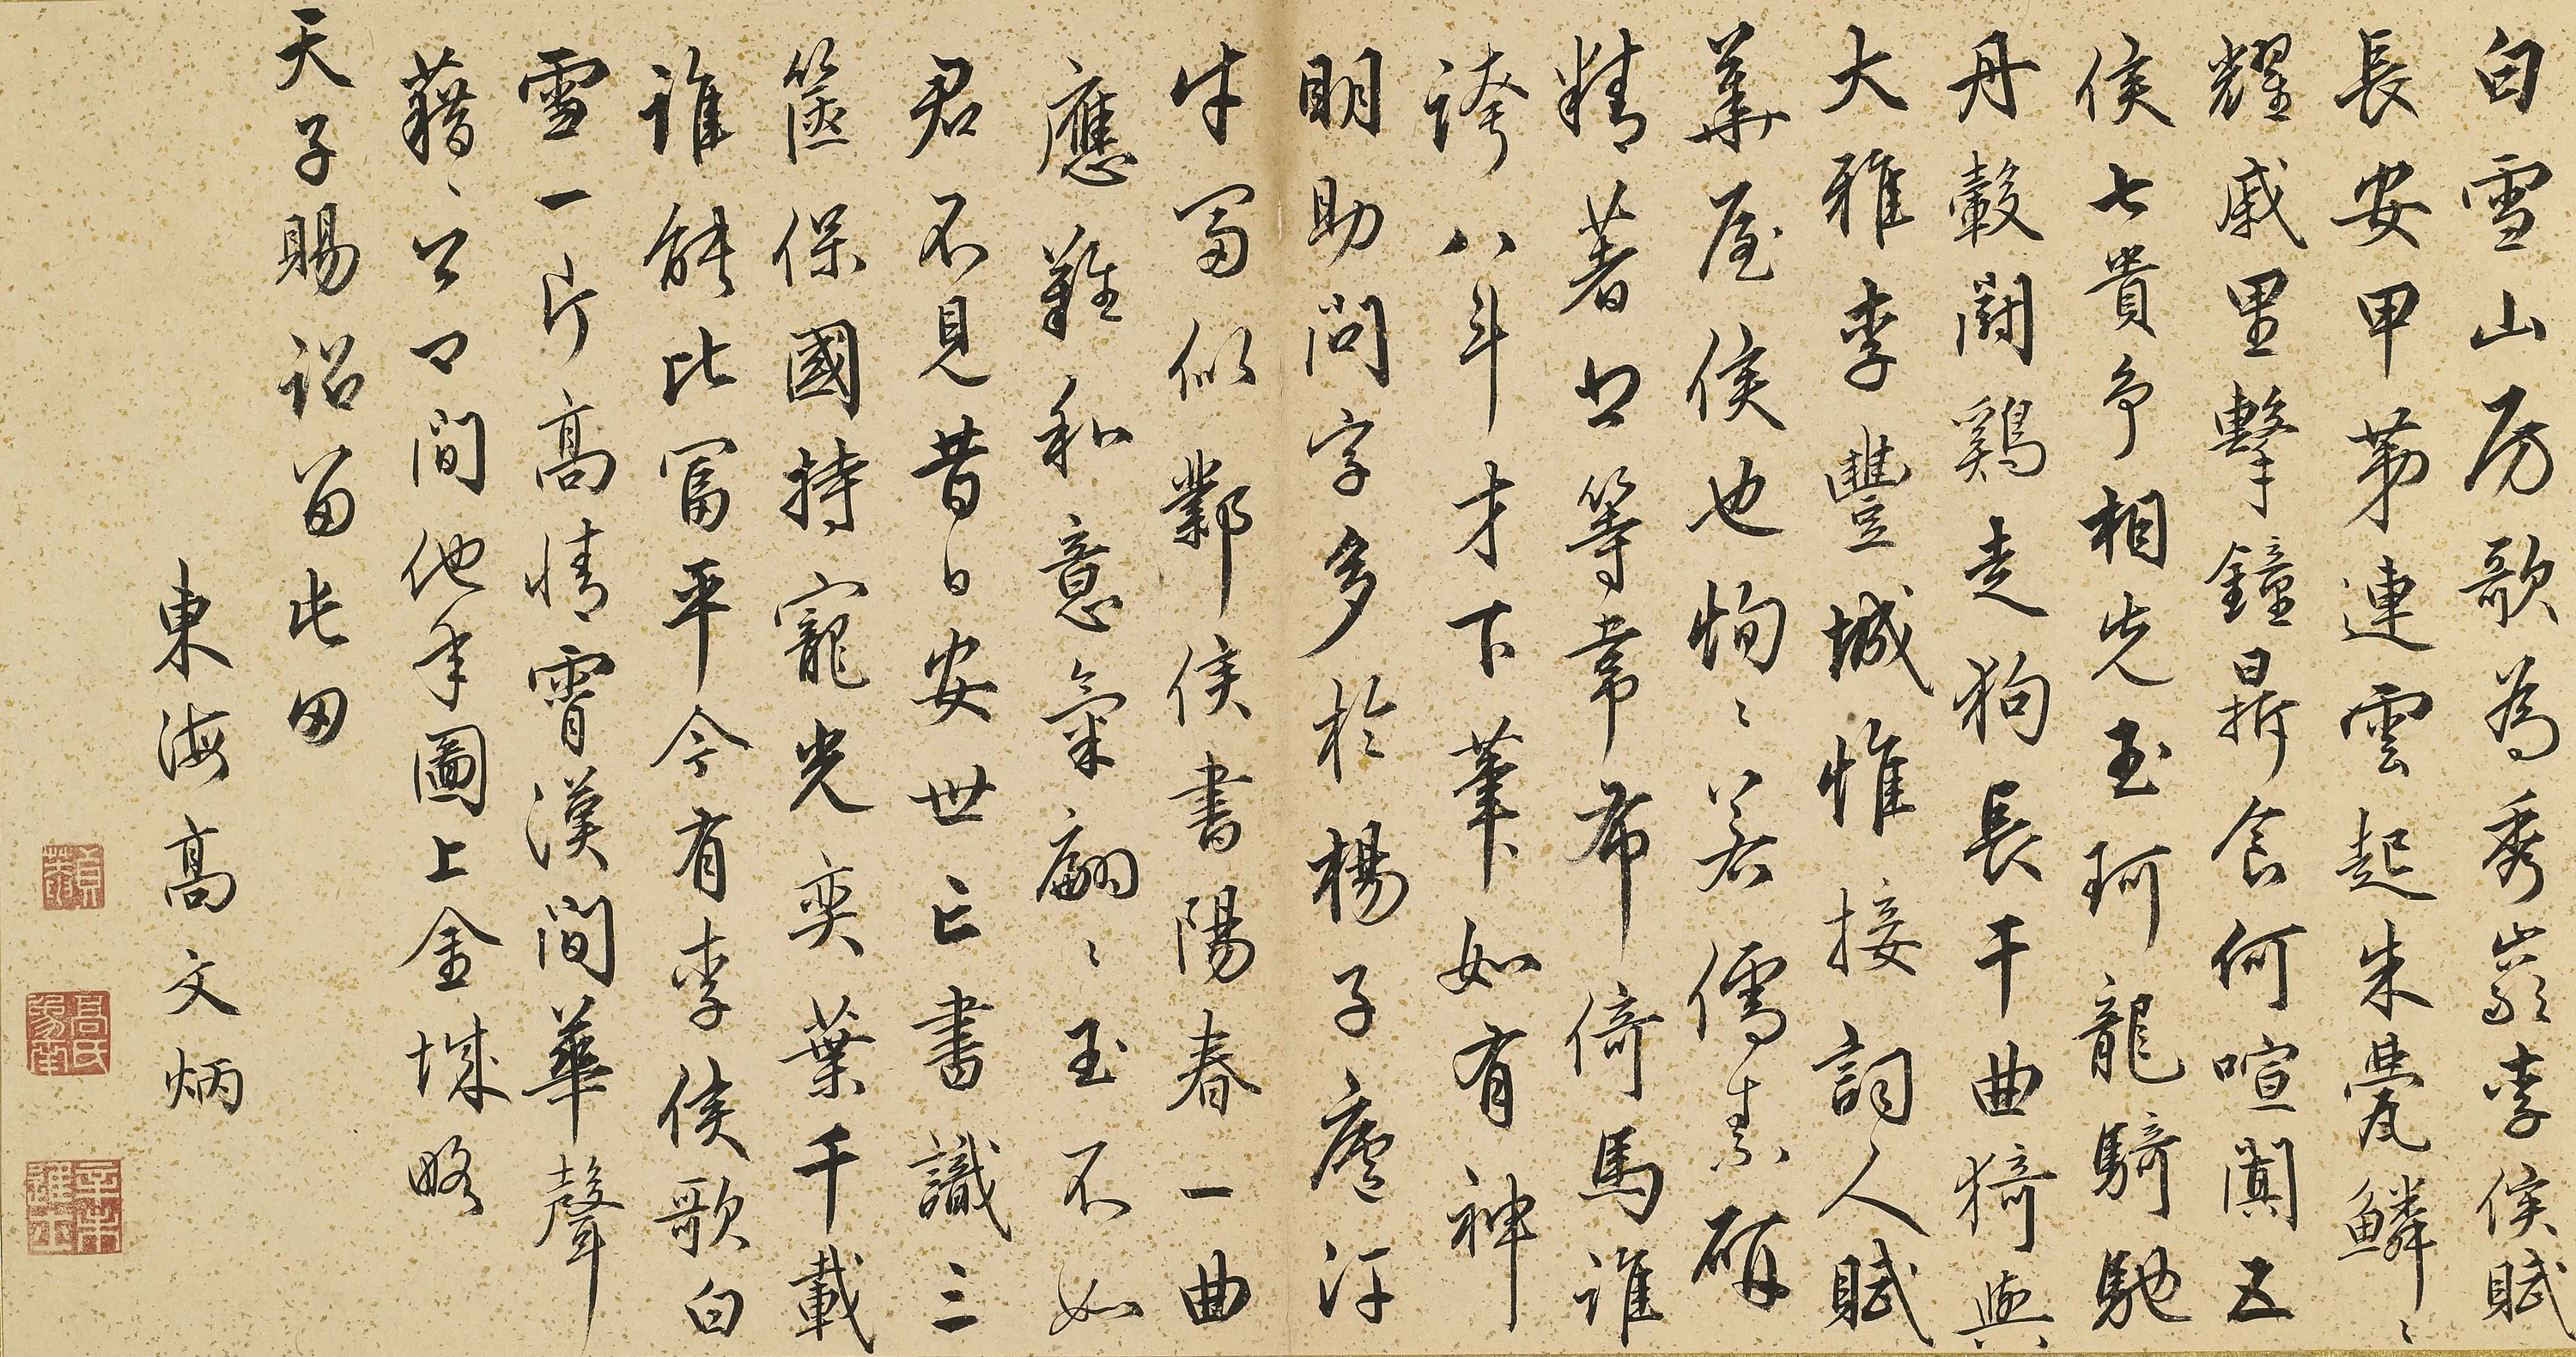 白雪山房歌為秀巖李侯賦
長安甲第連雲起朱甍鱗〻
耀戚里擊鐘鼎食何喧闐五
侯七貴爭相先玉珂龍騎馳
丹轂鬪鷄走狗長干曲猗與
大雅李豐城惟接詞人賦
華屋侯也恂〻若儒素研
精著書等韋布倚馬誰
誇八斗才下筆如有神
明助問字多於楊子廬汗
牛富似鄴侯書陽春一曲
應難和意氣翩〻玉不如
君不見昔日安世亡書識三
篋保國持寵光奕葉千載
誰能比富平今有李侯歌白
雪一片高情霄漢間華聲
藉〻公口間他年圖上金城略
天子賜詔留屯田
東海高文炳